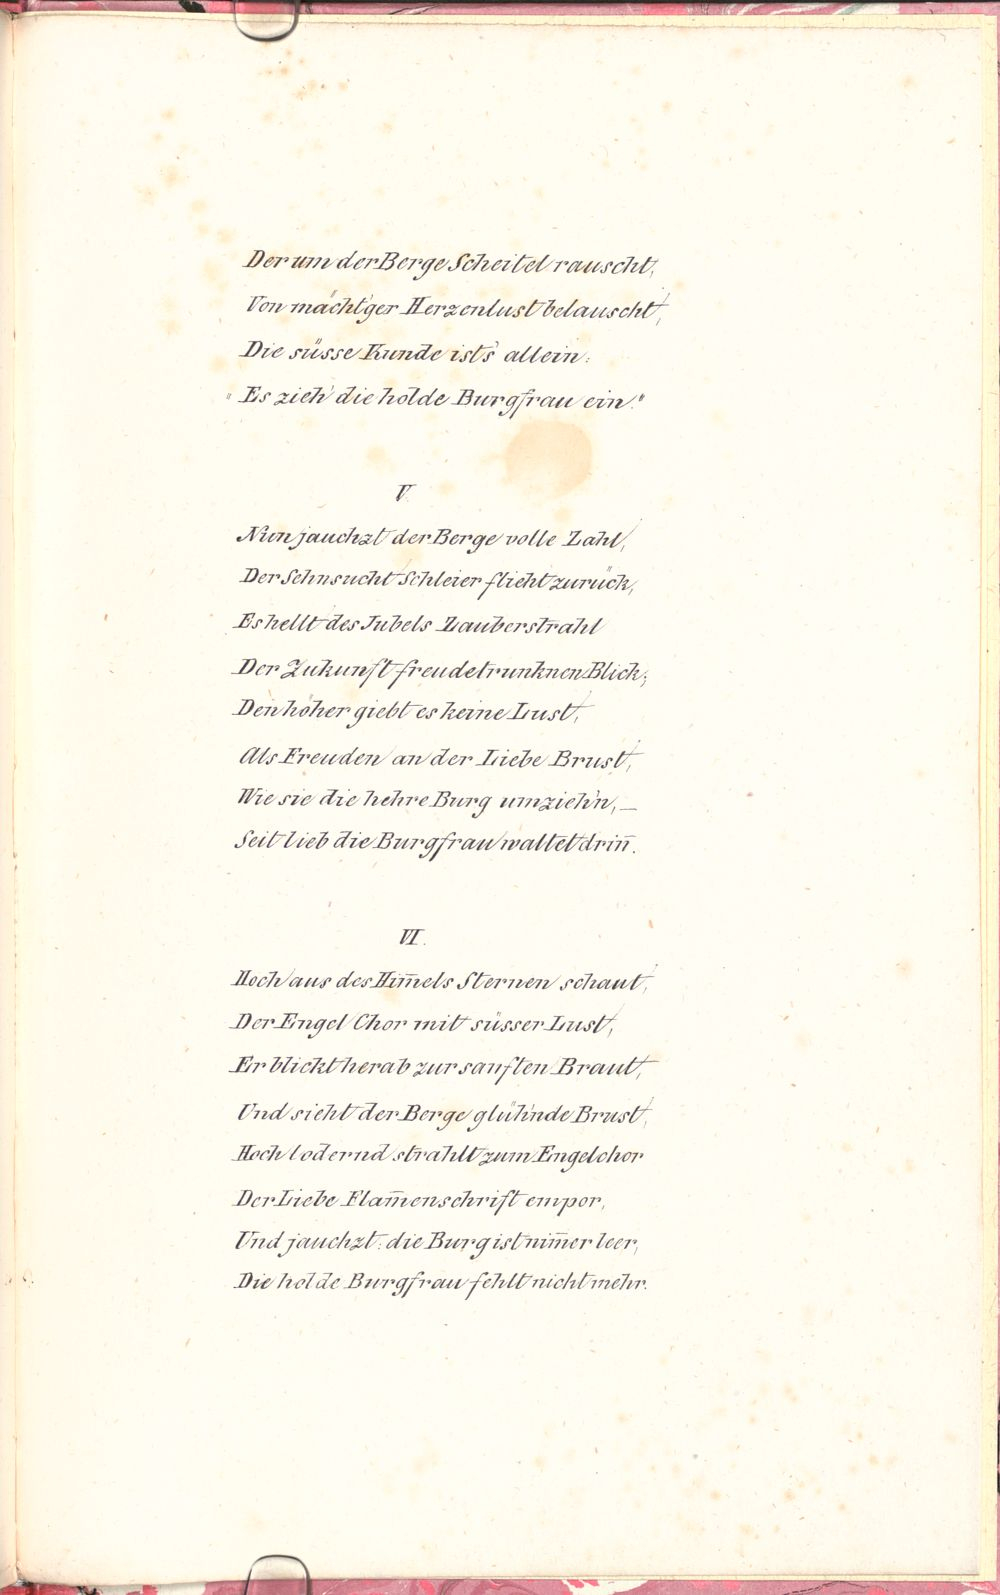 Der um der Berge Scheitel rauscht,
Von mächt'ger Herzenlust belauscht,
Die süsse Kunde ist's allein:
"Es zieh' die holde Burgfrau ein."
V.
Nun jauchzt der Berge volle Zahl,
Der Sehnsucht Schleier flieht zurück,
Es hellt des Jubels Zauberstrahl
Der Zukunft freudetrunknen Blick;
Den̄ höher giebt es keine Lust,
Als Freuden an der Liebe Brust,
Wie sie die hehre Burg umzieh'n, —
Seit lieb die Burgfrau waltet drin̄.
VI.
Hoch aus des Him̄els Sternen schaut,
Der Engel Chor mit süsser Lust,
Er blickt herab zur sanften Braut,
Und sieht der Berge glüh'nde Brust,
Hoch lodernd strahlt zum Engelchor
Der Liebe Flam̄enschrift empor,
Und jauchzt: die Burg ist nim̄er leer,
Die holde Burgfrau fehlt nicht mehr.